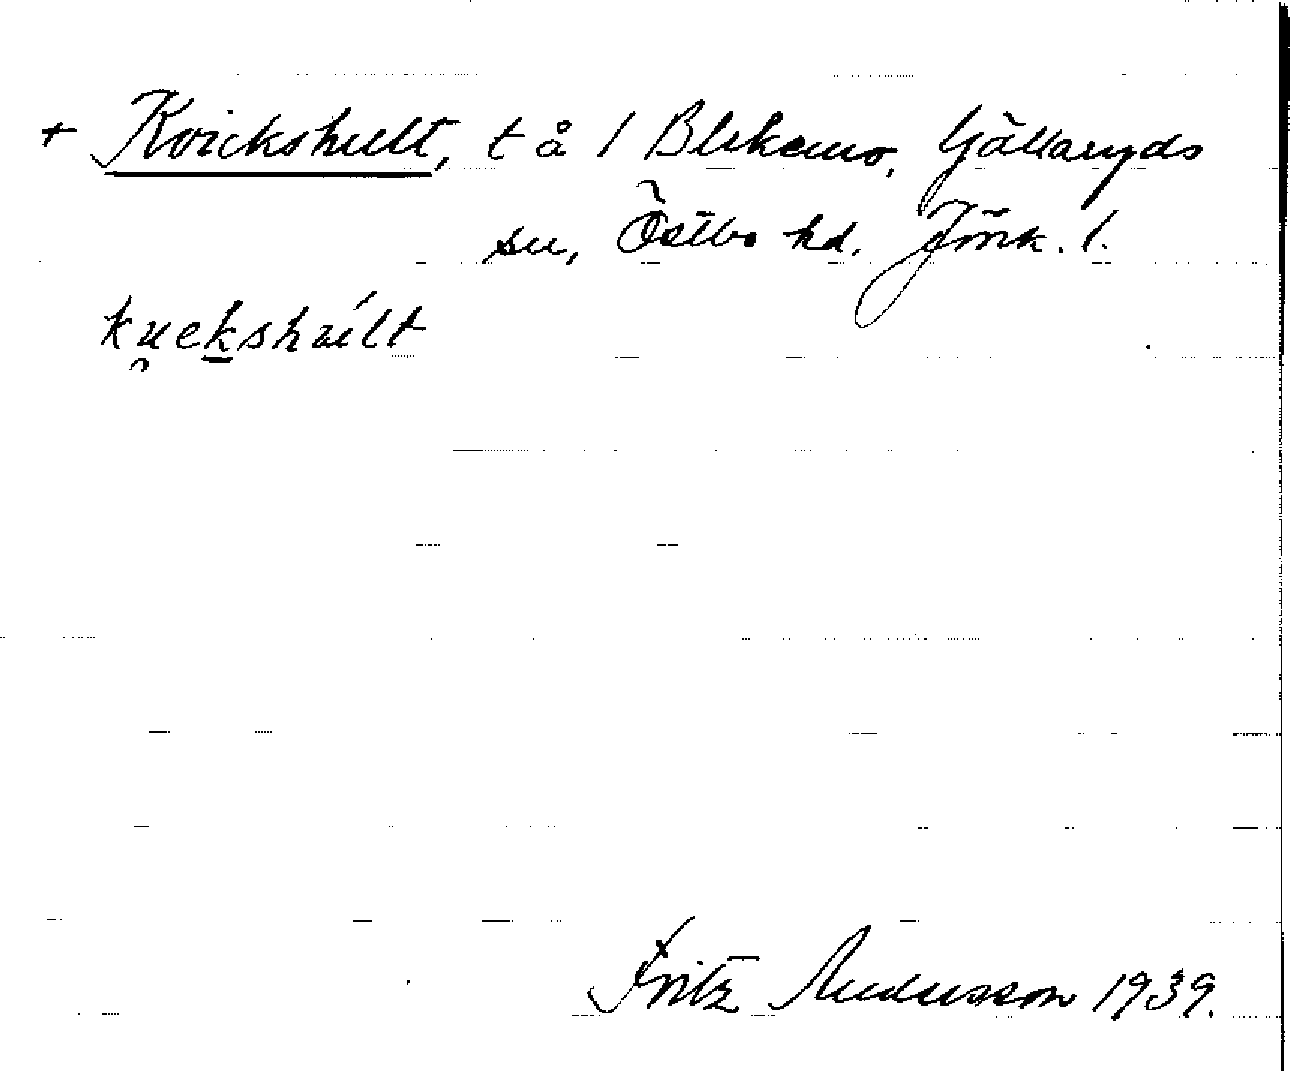 + Kvickshult, t å 1 Blekemo, Gällaryds
sn, Östbo hd. Jönk. l.
Fritz Andersson 1939.